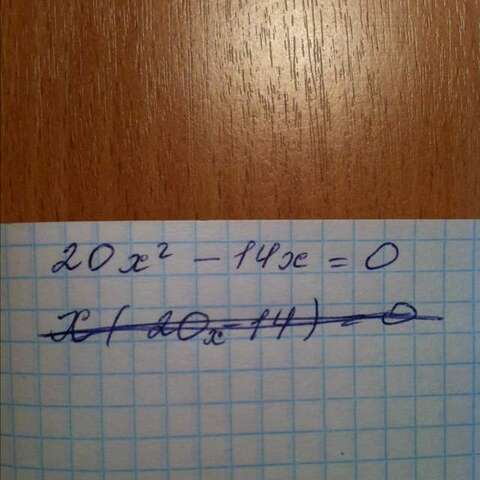 20x² - 14x = 0
x(20x-14) = 0